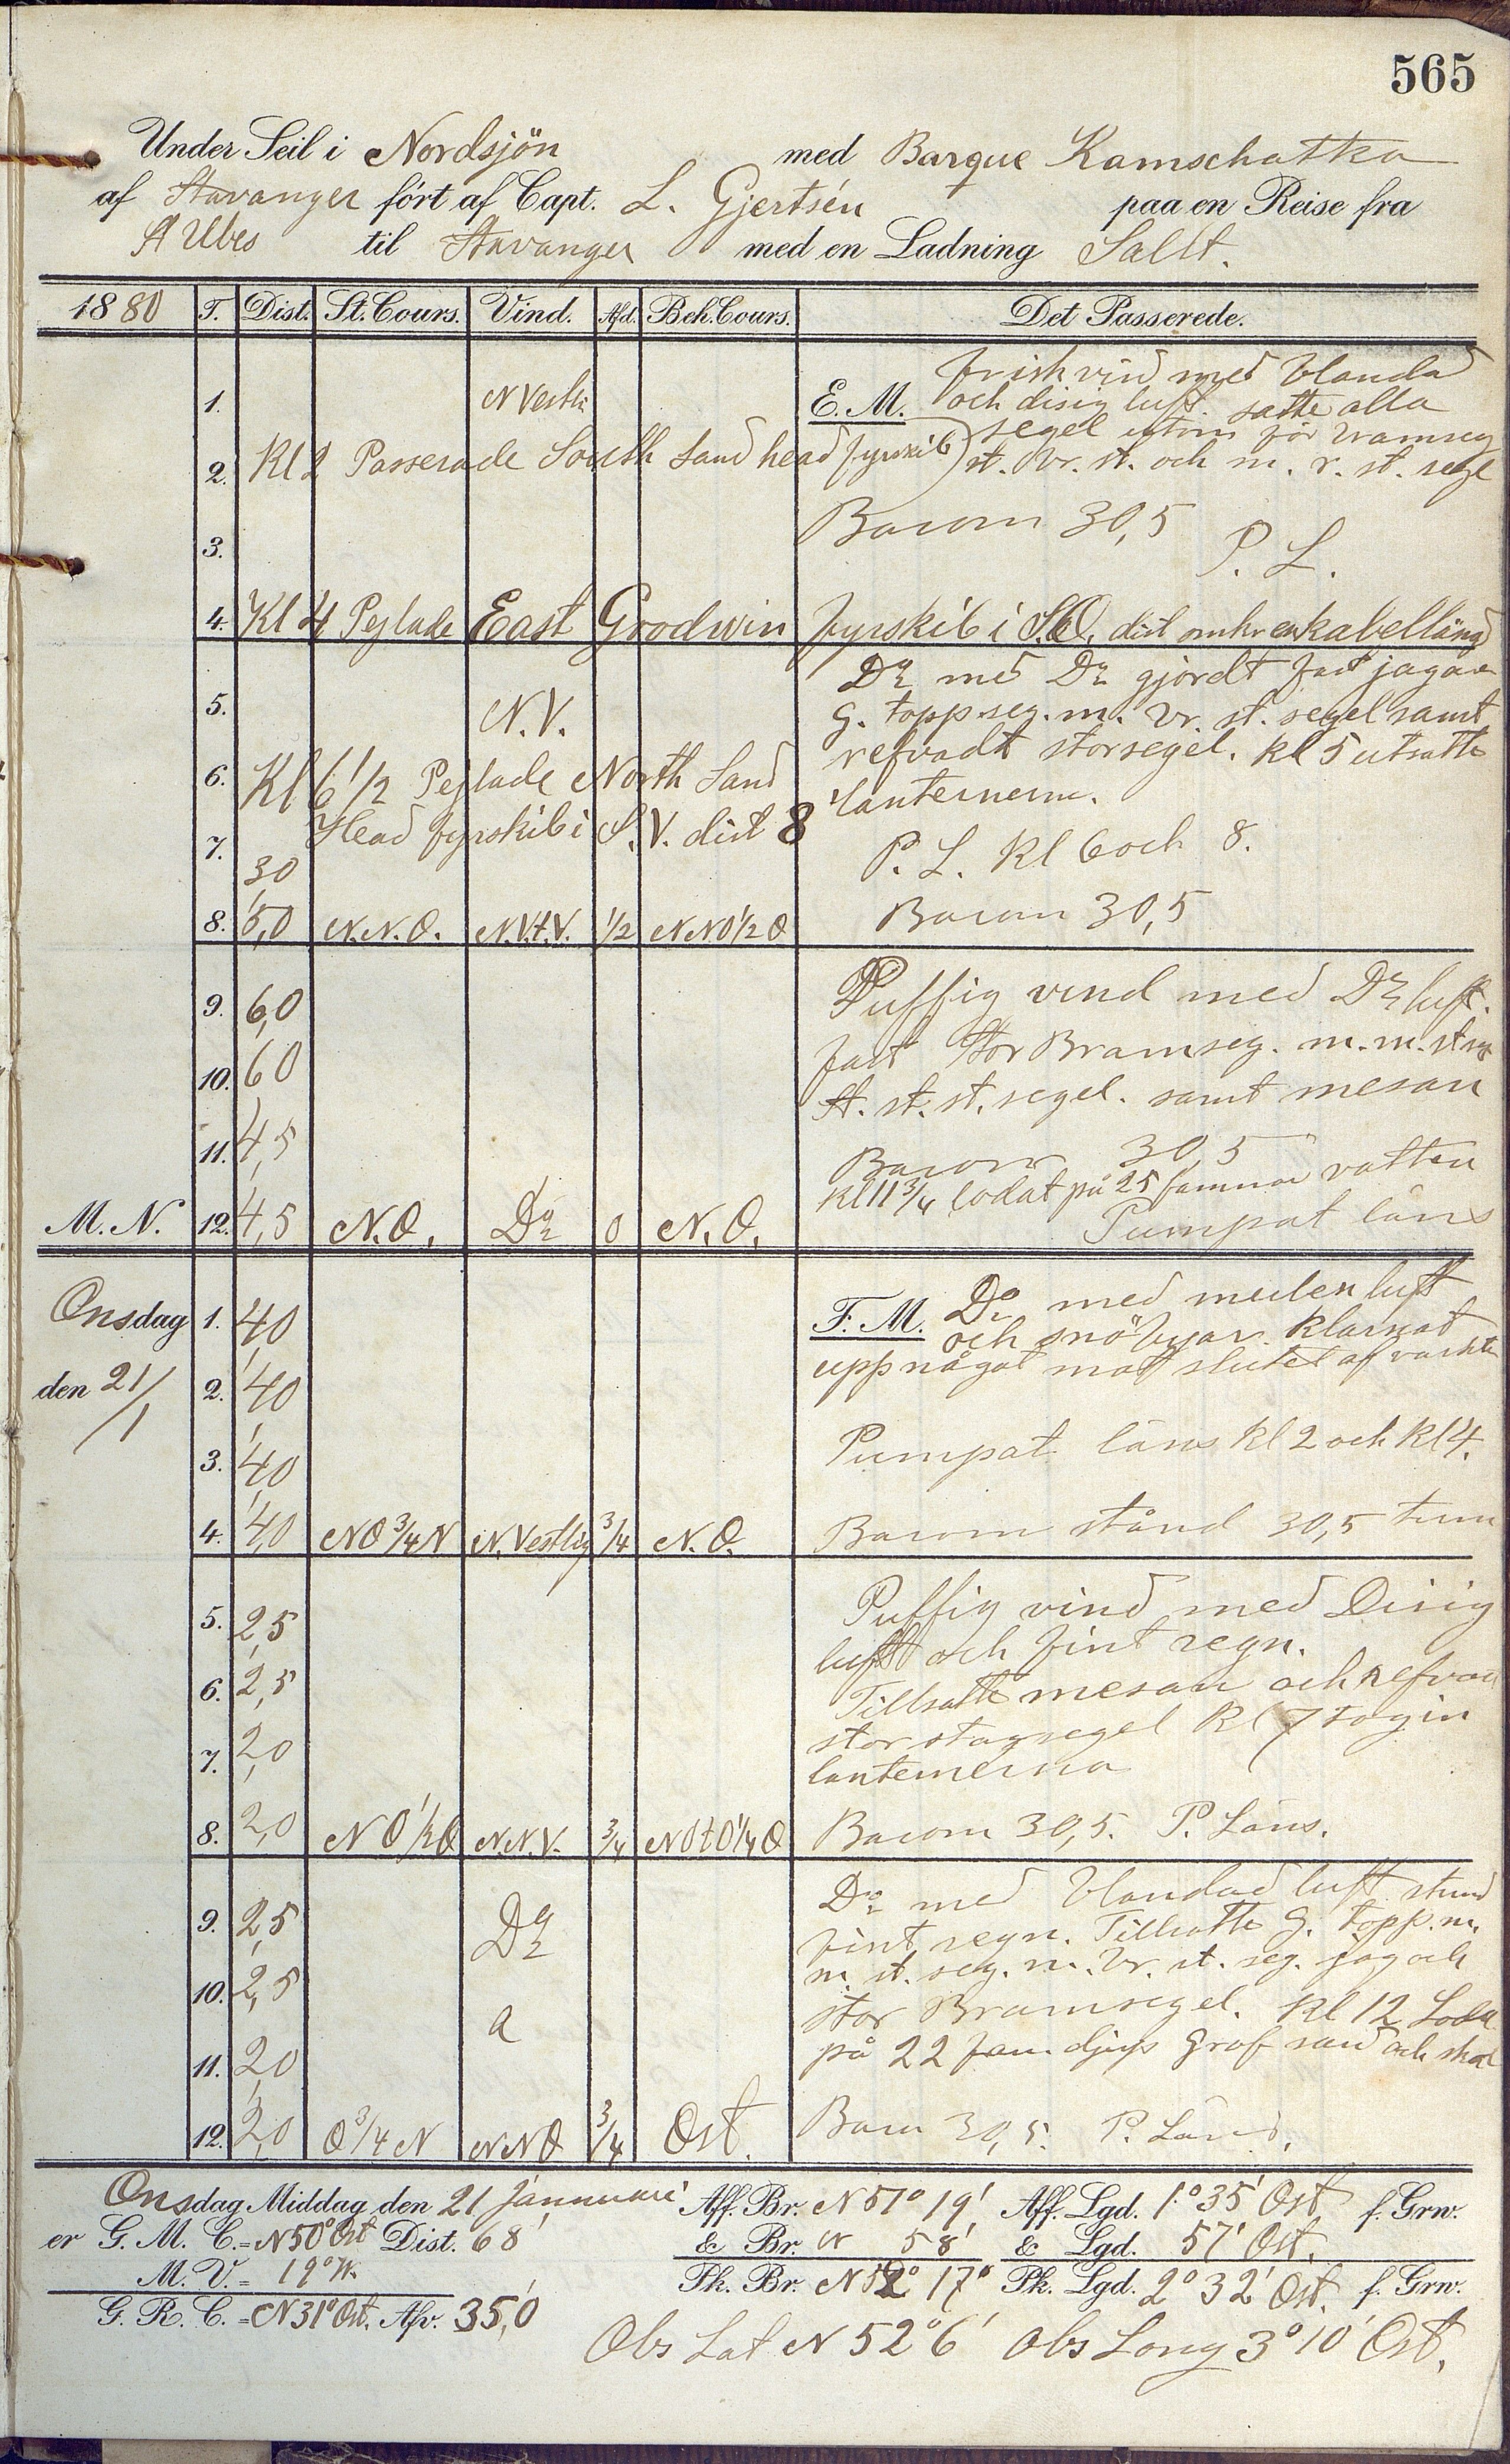 565
Under Seil i Nordsjön med Barque Kamschatka
af Stavanger fört af Capt. L. Gjertsén paa en Reise fra
St Ubes til Stavanger med en Ladning Sallt.
1880 T. Dist. St. Cours. Vind. Afd. Beh. Cours. Det Passerede.
frisk vind med blandad
1. N Vestli E. M. och disig luft. satte alla
segel utom för bramseg
2. Kl 2 Passerade South Sand head fyrskib) st. br. st. och m. r. st. segl
Barom 30,5
3. P. L.
4. Kl 4 Pejlade East Grodwin fyrskib i S.O. dist omkr en kabellängd
Do med Do gjordt fast jagare
5. N.V. g. topp.seg. m. br. st. segel samt
refvadt storsegel. Kl 5 utsatte
6. Kl 6 1/2 Pejlade North Sand lanternerna.
7. Head fyrskib i S.V. dist 8 P. L. Kl 6 och 8.
30
8. 5,0 N.N.O. N.V.t.V. 1/2 NNO 1/2 O Barom 30,5
9. 6,0 Puffig vind med Do luft.
10. 60 fast Stor Bramseg. m. m. st seg
St. st. st. segel. samt mesan
11. 4,5 Barom 30,5
Kl 11 3/4 lodat på 25 famnar vatten
M. N. 12. 4,5 N.O. Do 0 N.O. Pumpat läns
Onsdag 1. 4,0 F. M. Do med mulen luft
och snö byar. Klarnat
den 21/1 2. 40 upp något mot slutet af vackten
3. 40 Pumpat läns Kl 2 och Kl 4.
4. 4,0 NO 3/4 N N. Vestlig 3/4 N.O. Barom stånd 30,5 tum
5. 2,5 Puffig vind med Disig
luft och fint regn.
6. 2,5 Tillsatte mesan och refvad
7. 2,0 stor stagsegel Kl 7 togin
lanternerna
8. 2,0 N O 1/2 O N.N.V. 3/4 NOtO 1/4 O Barom 30,5. P. Läns.
Do med blandad luft stund
9. 2,5 Do fint regn. Tillsatte g. topp. m.
10. 2,5 m. st. seg. m. br. st. seg. jag och
a stor Bramsegel. Kl 12 Lodat
11. 2,0 på 22 fam djup Graf sand och skal
12. 2,0 O 3/4 N NNO 3/4 Ost. Barom 30,5. P. Läns.
Onsdag Middag den 21 Januari Aff. Br. N 51° 19' Aff. Lgd. 1° 35' Ost f. Grw.
er G. M. C. = N 50° Ost Dist. 68' & Br. N 58' & Lgd. 57' Ost.
M. V. = 19° W. Pk. Br. N 52° 17' Pk. Lgd. 2° 32' Ost. f. Grw.
G. R. C. = N 31° Ost. Afv. 35,0'
Obs Lat N 52° 6' Obs Long 3° 10' Ost.